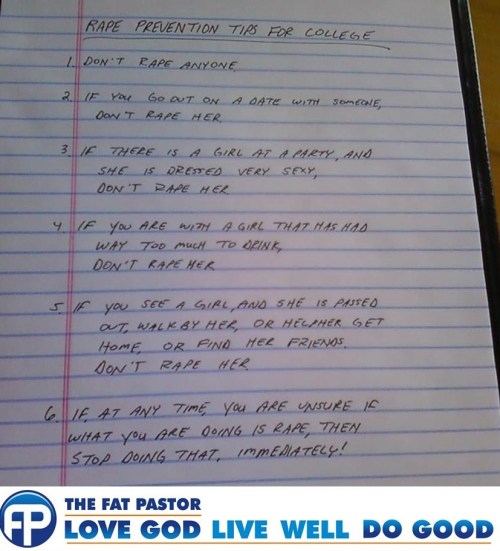 RAPE PREVENTION TIPS FOR COLLEGE
1. DON'T RAPE ANYONE
2. IF YOU GO OUT ON A DATE WITH SOMEONE,
DON'T RAPE HER
3. IF THERE IS A GIRL AT A PARTY, AND
SHE IS DRESSED VERY SEXY,
DON'T RAPE HER
4. IF YOU ARE WITH A GIRL THAT HAS HAD
WAY TOO MUCH TO DRINK,
DON'T RAPE HER
5. IF YOU SEE A GIRL, AND SHE IS PASSED
OUT, WALK BY HER, OR HELP HER GET
HOME, OR FIND HER FRIENDS.
DON'T RAPE HER
6. IF, AT ANY TIME, YOU ARE UNSURE IF
WHAT YOU ARE DOING IS RAPE, THEN
STOP DOING THAT, IMMEDIATELY!
FP
THE FAT PASTOR
LOVE GOD LIVE WELL DO GOOD